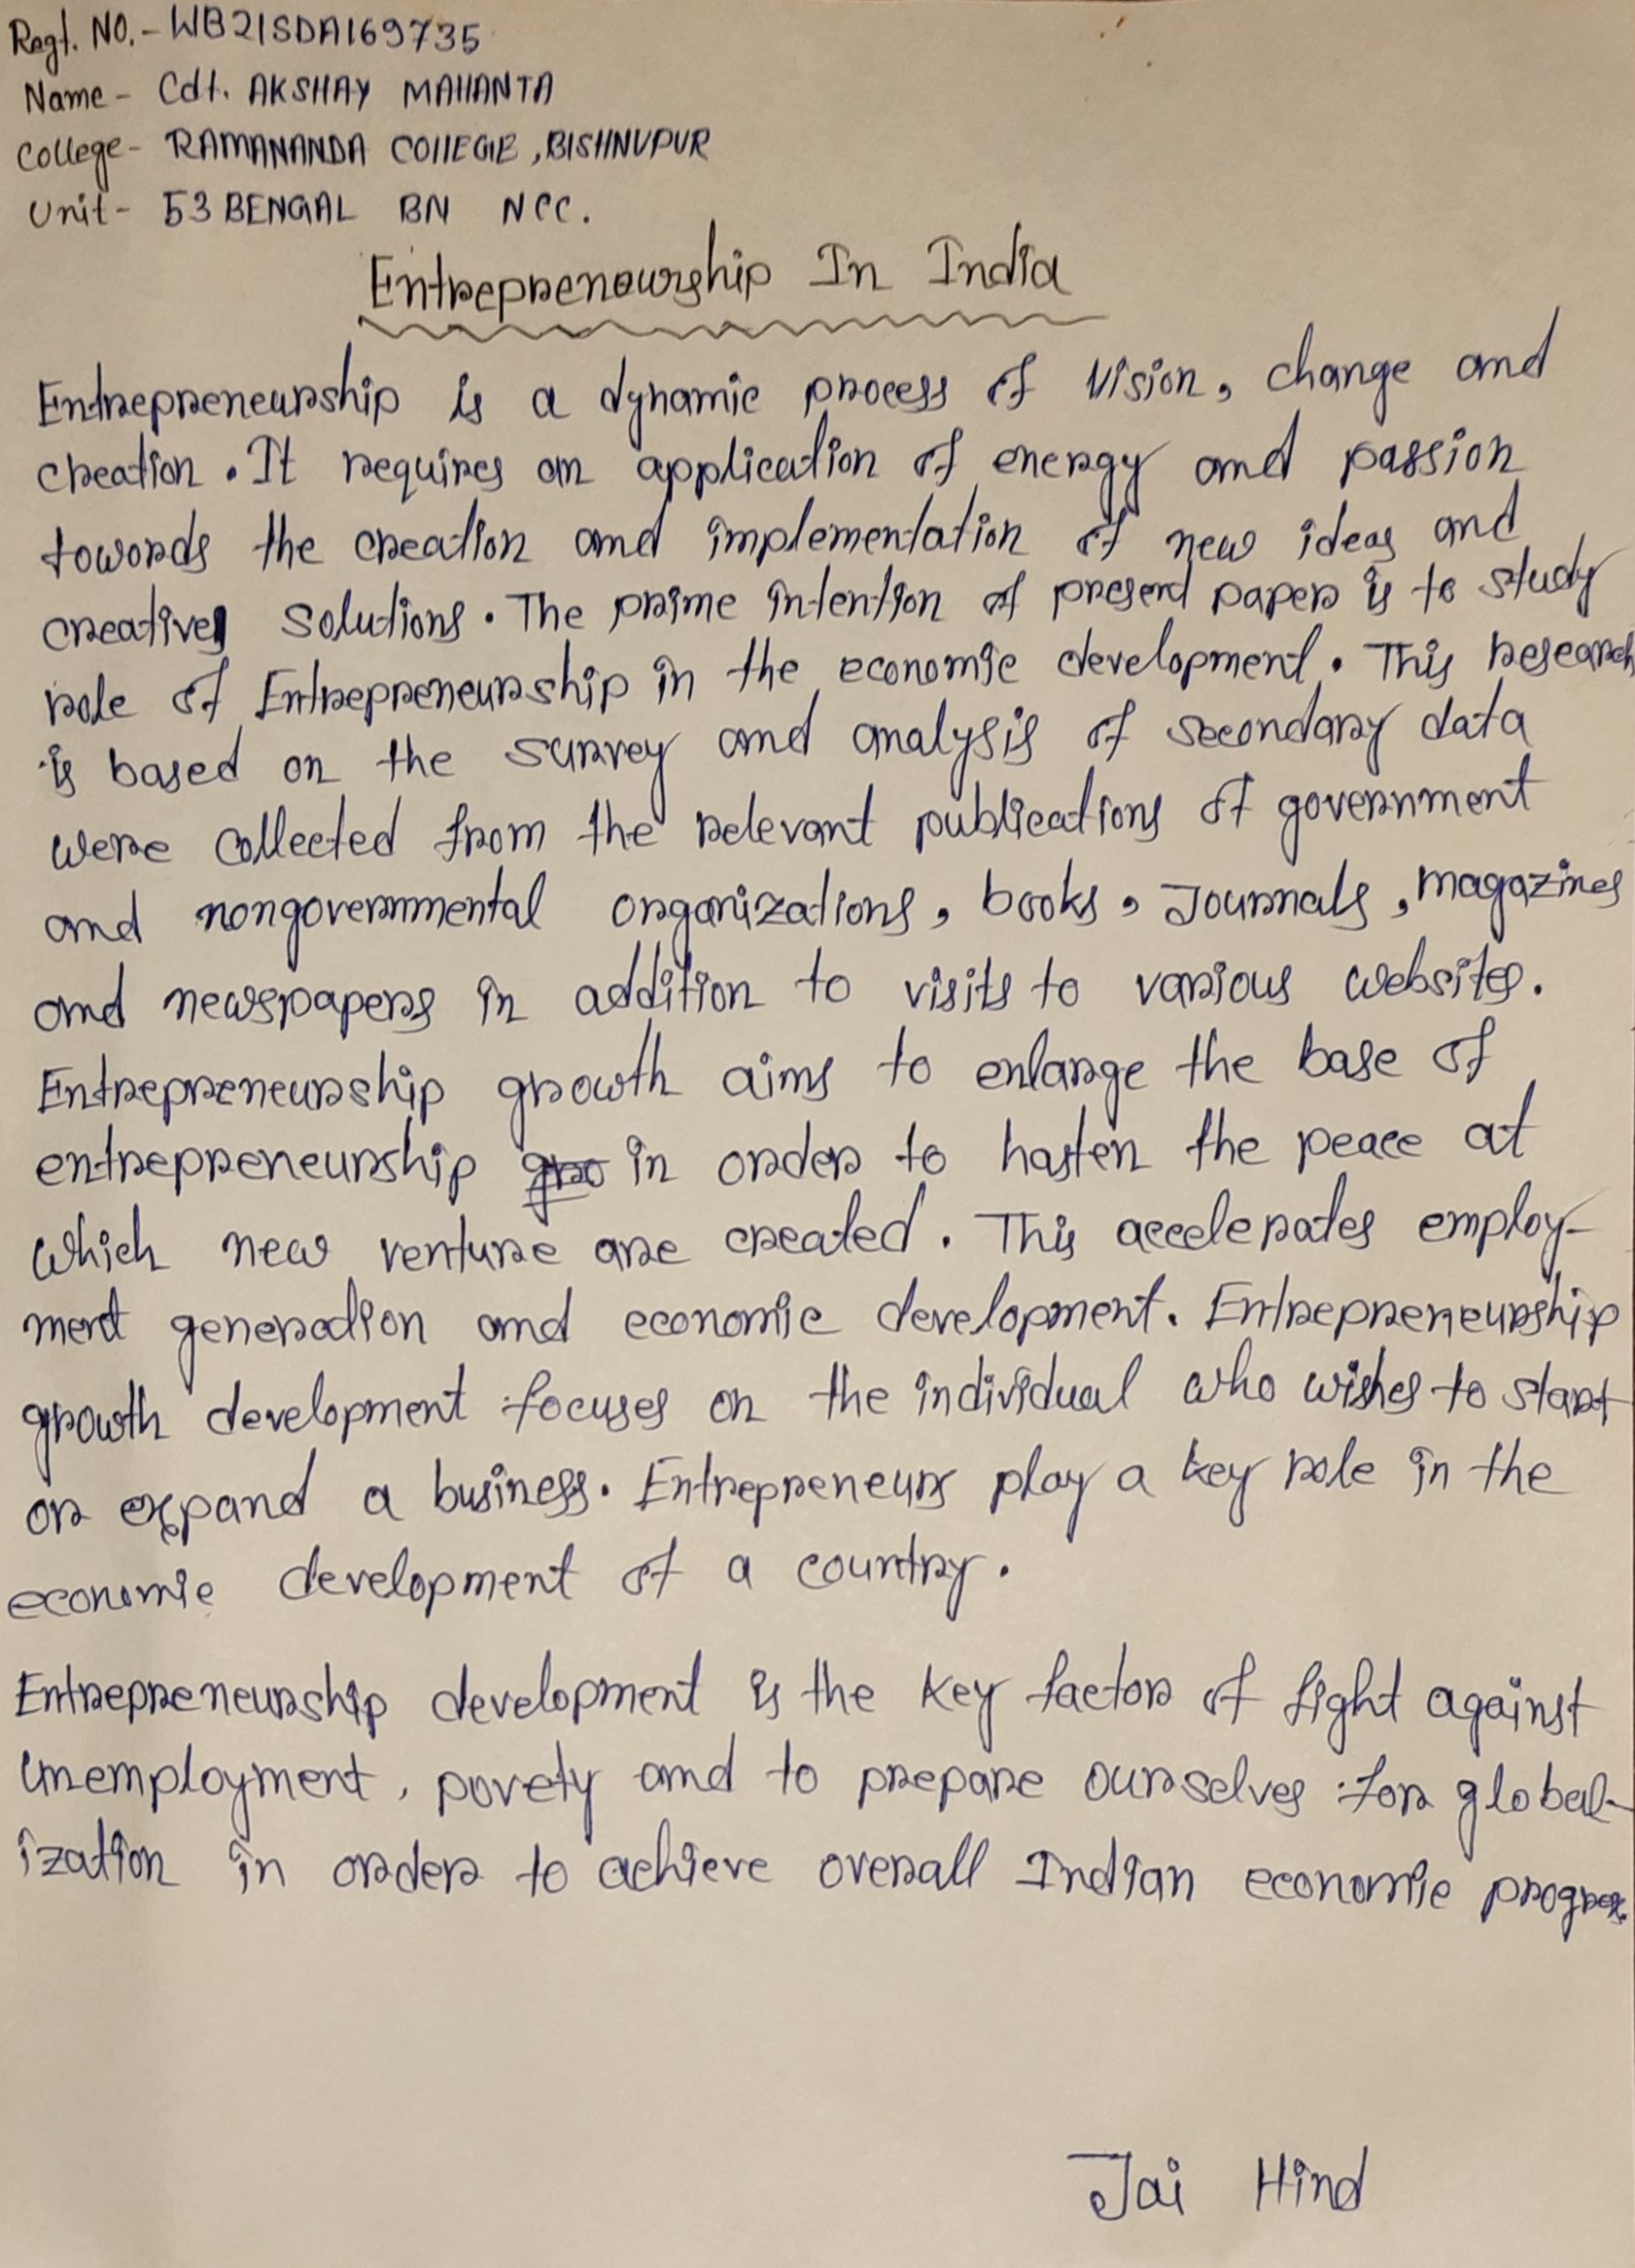 Regt. NO.- WB21SDA169735
Name - Cdt. AKSHAY MAHANTA
College- RAMANANDA COllEGE ,BISHNUPUR
Unit- 53 BENGAL BN NCC.
Entrepreneourship In India
Entrepreneurship is a dynamic process of Vision, change and
creation. It requires an application of energy and passion
towords the creation and implementation of new ideas and
creative solutions. The prime intention of present paper is to study
role of Entrepreneurship in the economic development. This research
is based on the survey and analysis of secondary data
were collected from the relevant publications of government
and nongovernmental organizations, books, Journals, magazines
and newspapers in addition to visits to various websites.
Entrepreneurship growth aims to enlarge the base of
entrepreneurship gro in order to hasten the peace at
which new venture are created. This accelerates employ-
ment generation and economic development. Entrepreneurship
growth development focuses on the individual who wishes to start
or expand a business. Entrepreneurs play a key role in the
economic development of a country.
Entrepreneurship development is the key factor of fight against
Unemployment, povety and to prepare ourselves for global-
ization in order to achieve overall Indian economic
Jai Hind